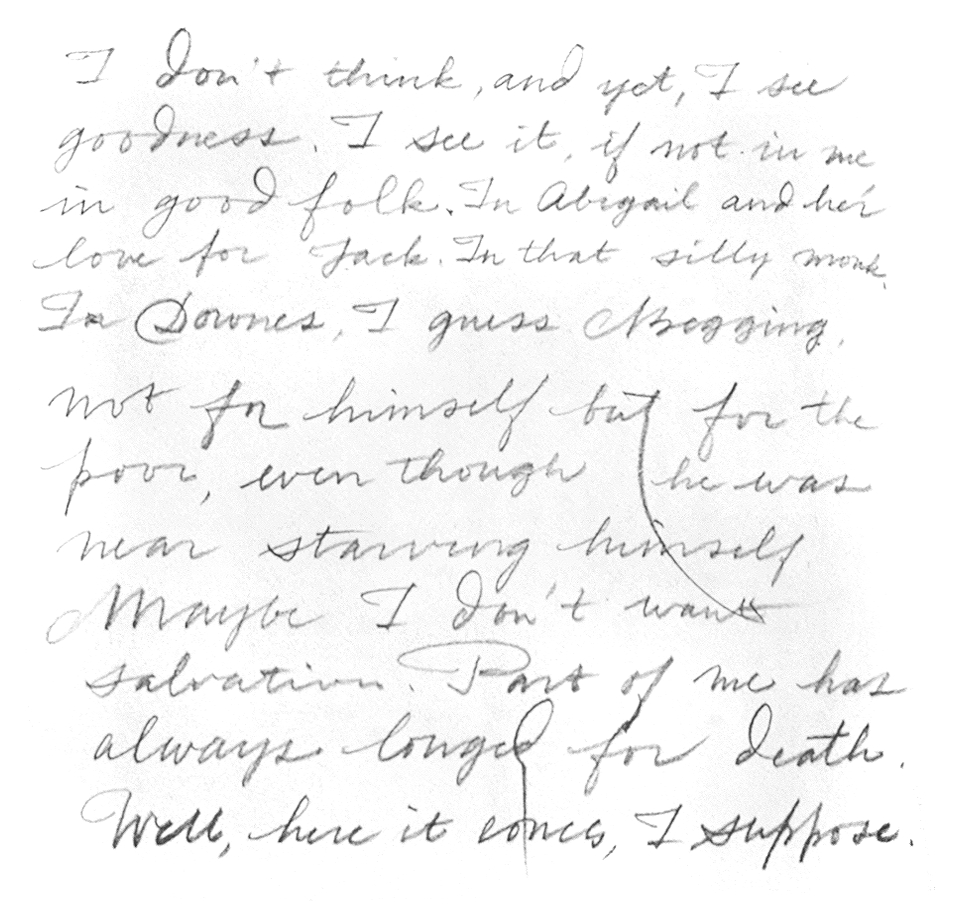 I don't think, and yet, I see
goodness. I see it, if not in me
in good folk. In Abigail and her
love for Jack. In that silly monk.
In Downes, I guess Begging,
not for himself but for the
poor, even though he was
near starving himself
Maybe I don't want
salvation. Part of me has
always longed for death.
Well, here it comes, I suppose.